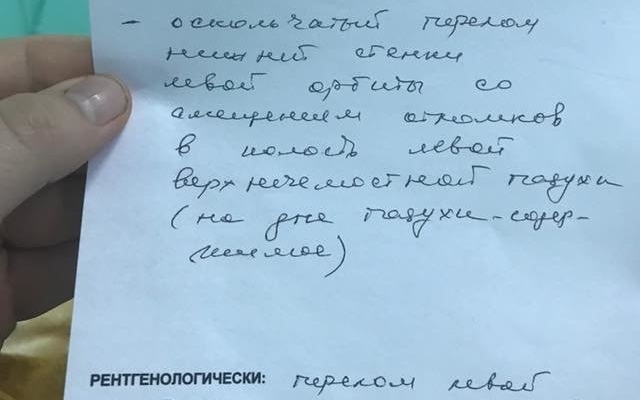 - оскольчатый перелом
нижней стенки
левой орбиты со
смещением отломков
в полость левой
верхнечелюстной пазухи
(на дне пазухи - содер-
жимое)
РЕНТГЕНОЛОГИЧЕСКИ: перелом левой